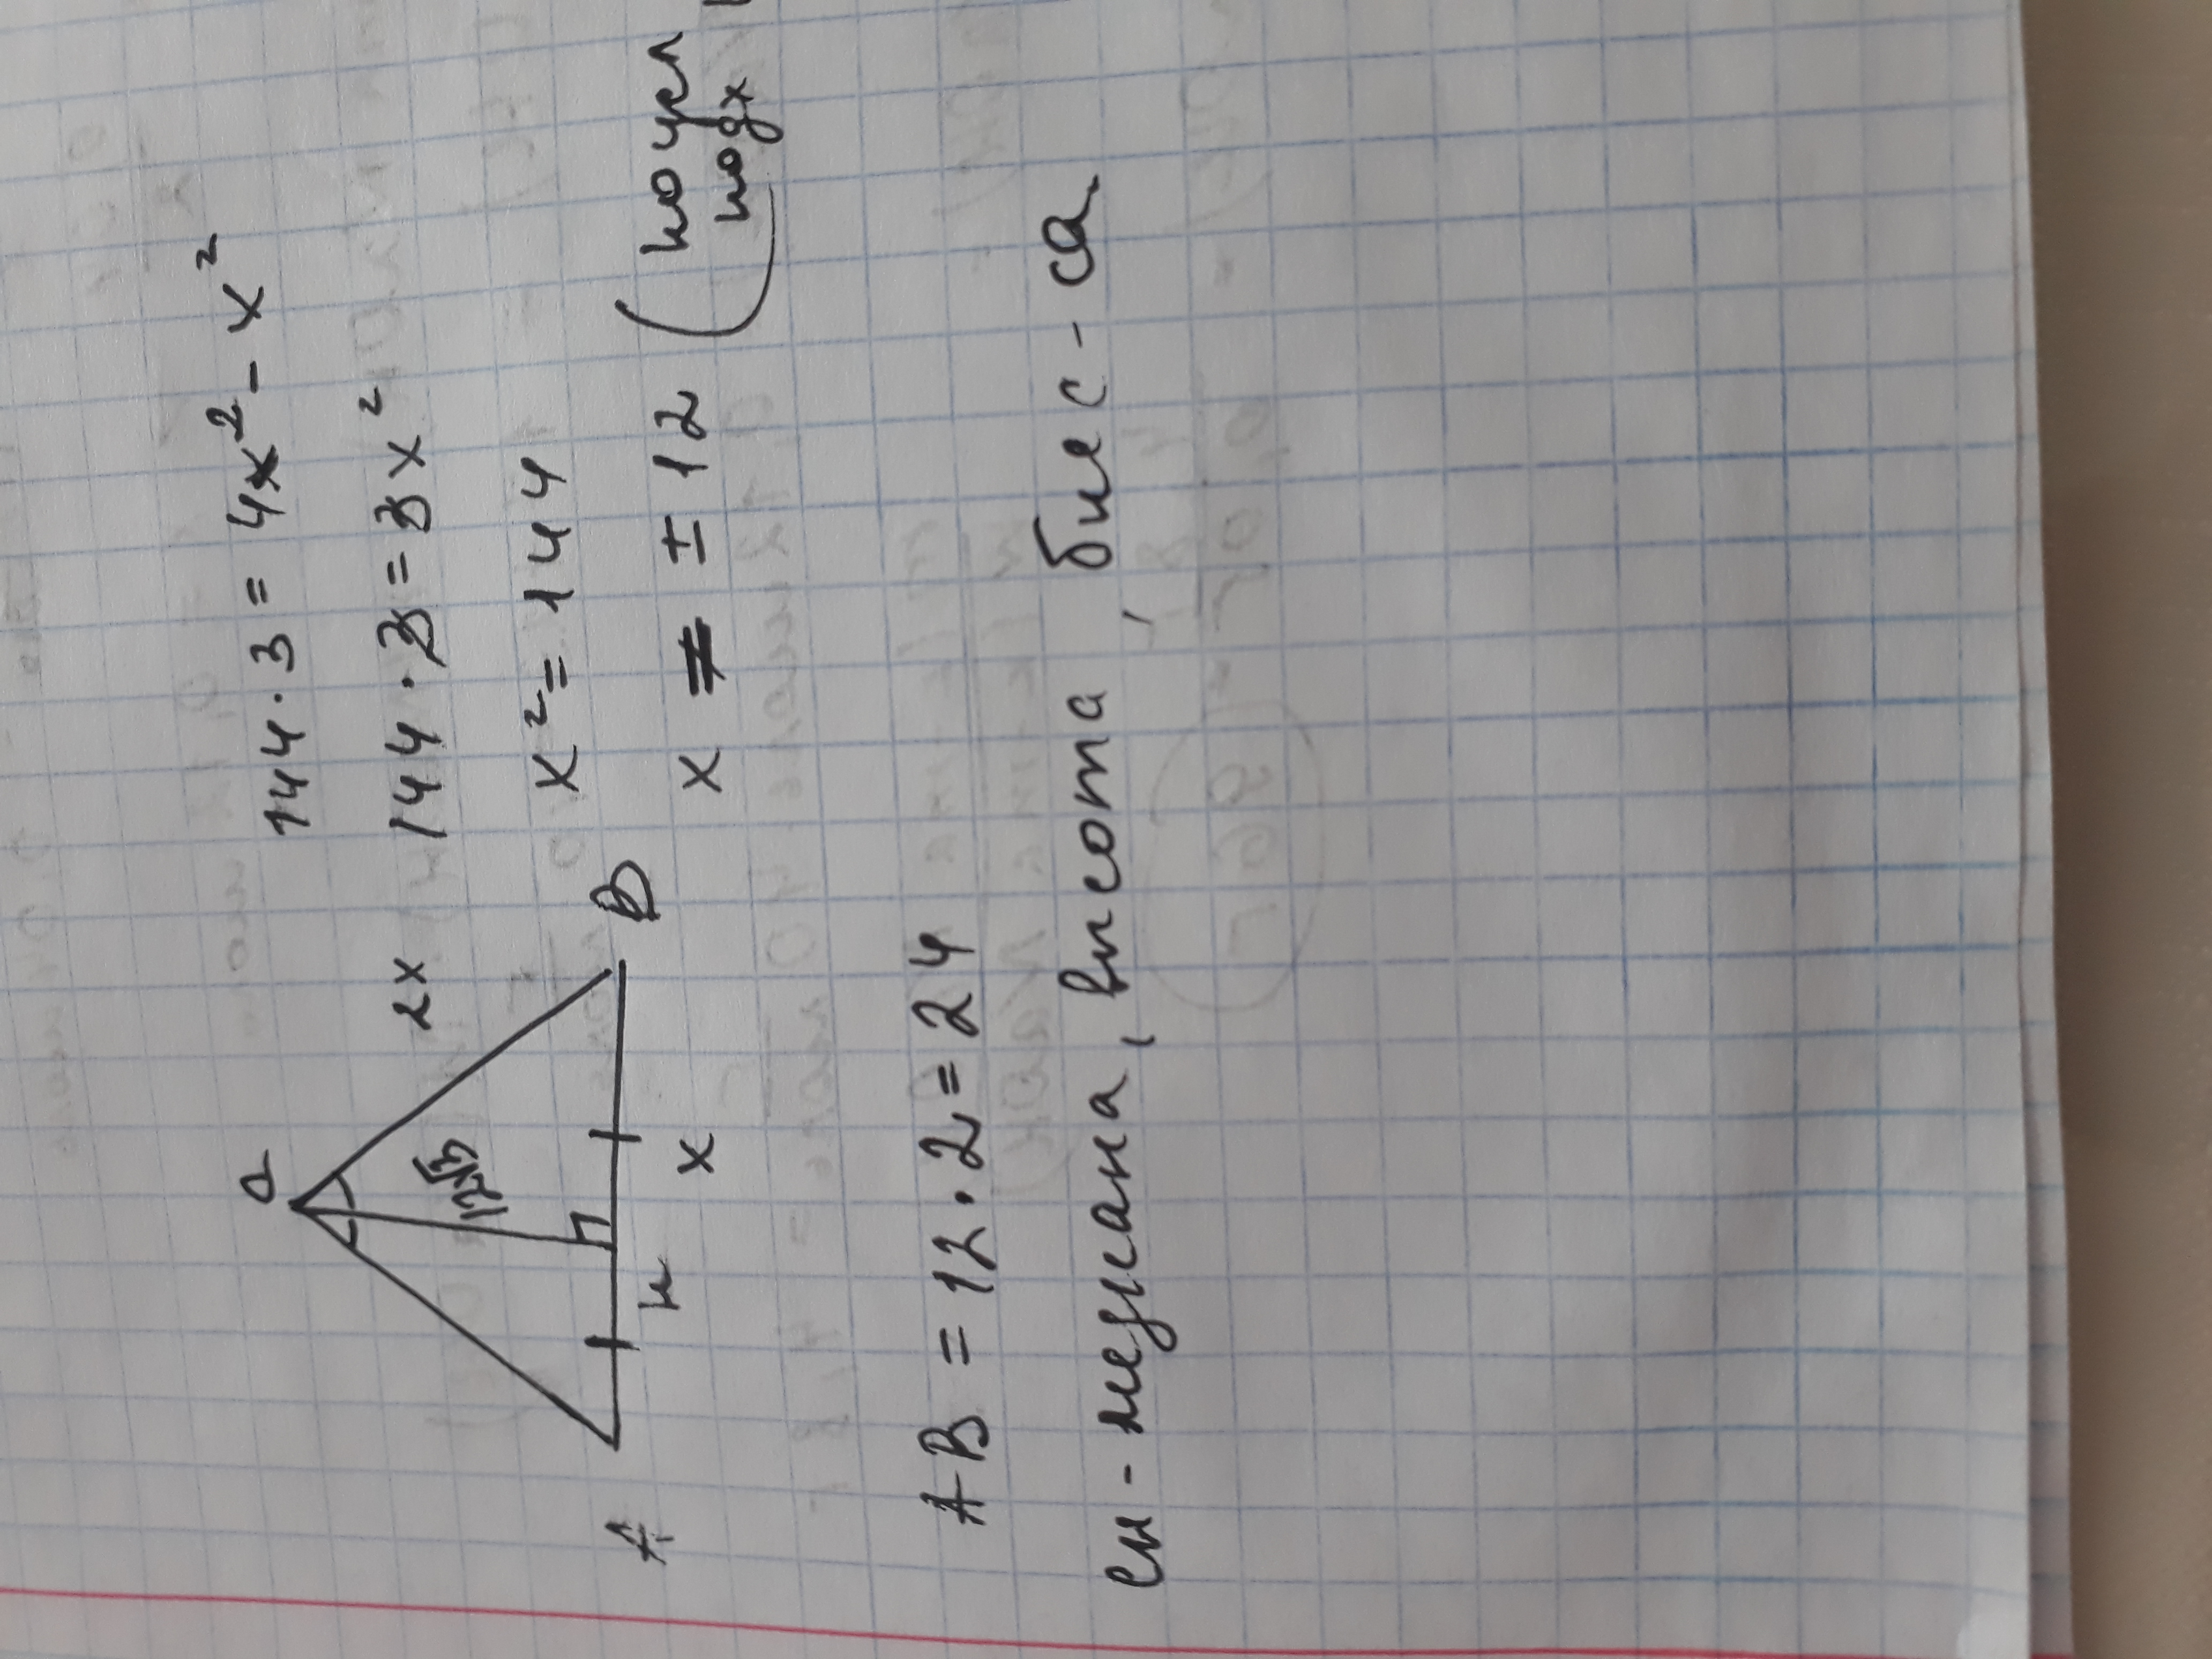 C
2x
12√3
A
н
x
B
144·3=4x²-x²
144·3=3x²
x²=144
x = ±12
(по усл
подх
AB = 12·2=24
сн-медиана, висота, бисс-са